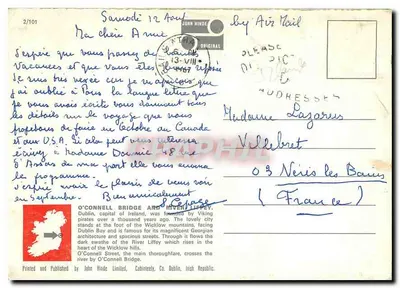 2/101
Samedi 12 Août
Ma chère Amie
J'espère que vous passez de bonnes
vacances et que vous êtes
Je suis très vexée car je m'aperçois que
j'ai oublié à Paris la longue lettre que
je vous avais écrite vous donnant tous
les détails sur le voyage que nous
proposons de faire en Octobre au Canada
et aux U.S.A. Si cela peut vous
écrivez à Madame
de ma part elle vous enverra
le programme.
J'espère avoir le plaisir de vous voir
en Septembre.
Bien amicalement
S. Lepage
JOHN HINDE
ORIGINAL
13-VIII
1967
by Air Mail
PLEASE
ADDRESSES
Madame Lazarus
Villebret
03 Néris les Bains
(France)
O'CONNELL BRIDGE AND RIVER LIFFEY
Dublin, capital of Ireland, was founded by Viking
pirates over a thousand years ago. The lovely city
stands at the foot of the Wicklow mountains, facing
Dublin Bay and is famous for its magnificent Georgian
architecture and spacious streets. Through it flows the
dark swathe of the River Liffey which rises in the
heart of the Wicklow hills.
O'Connell Street, the main thoroughfare, crosses the
river by O'Connell Bridge.
Printed and Published by John Hinde Limited, Cabinteely, Co. Dublin, Irish Republic.